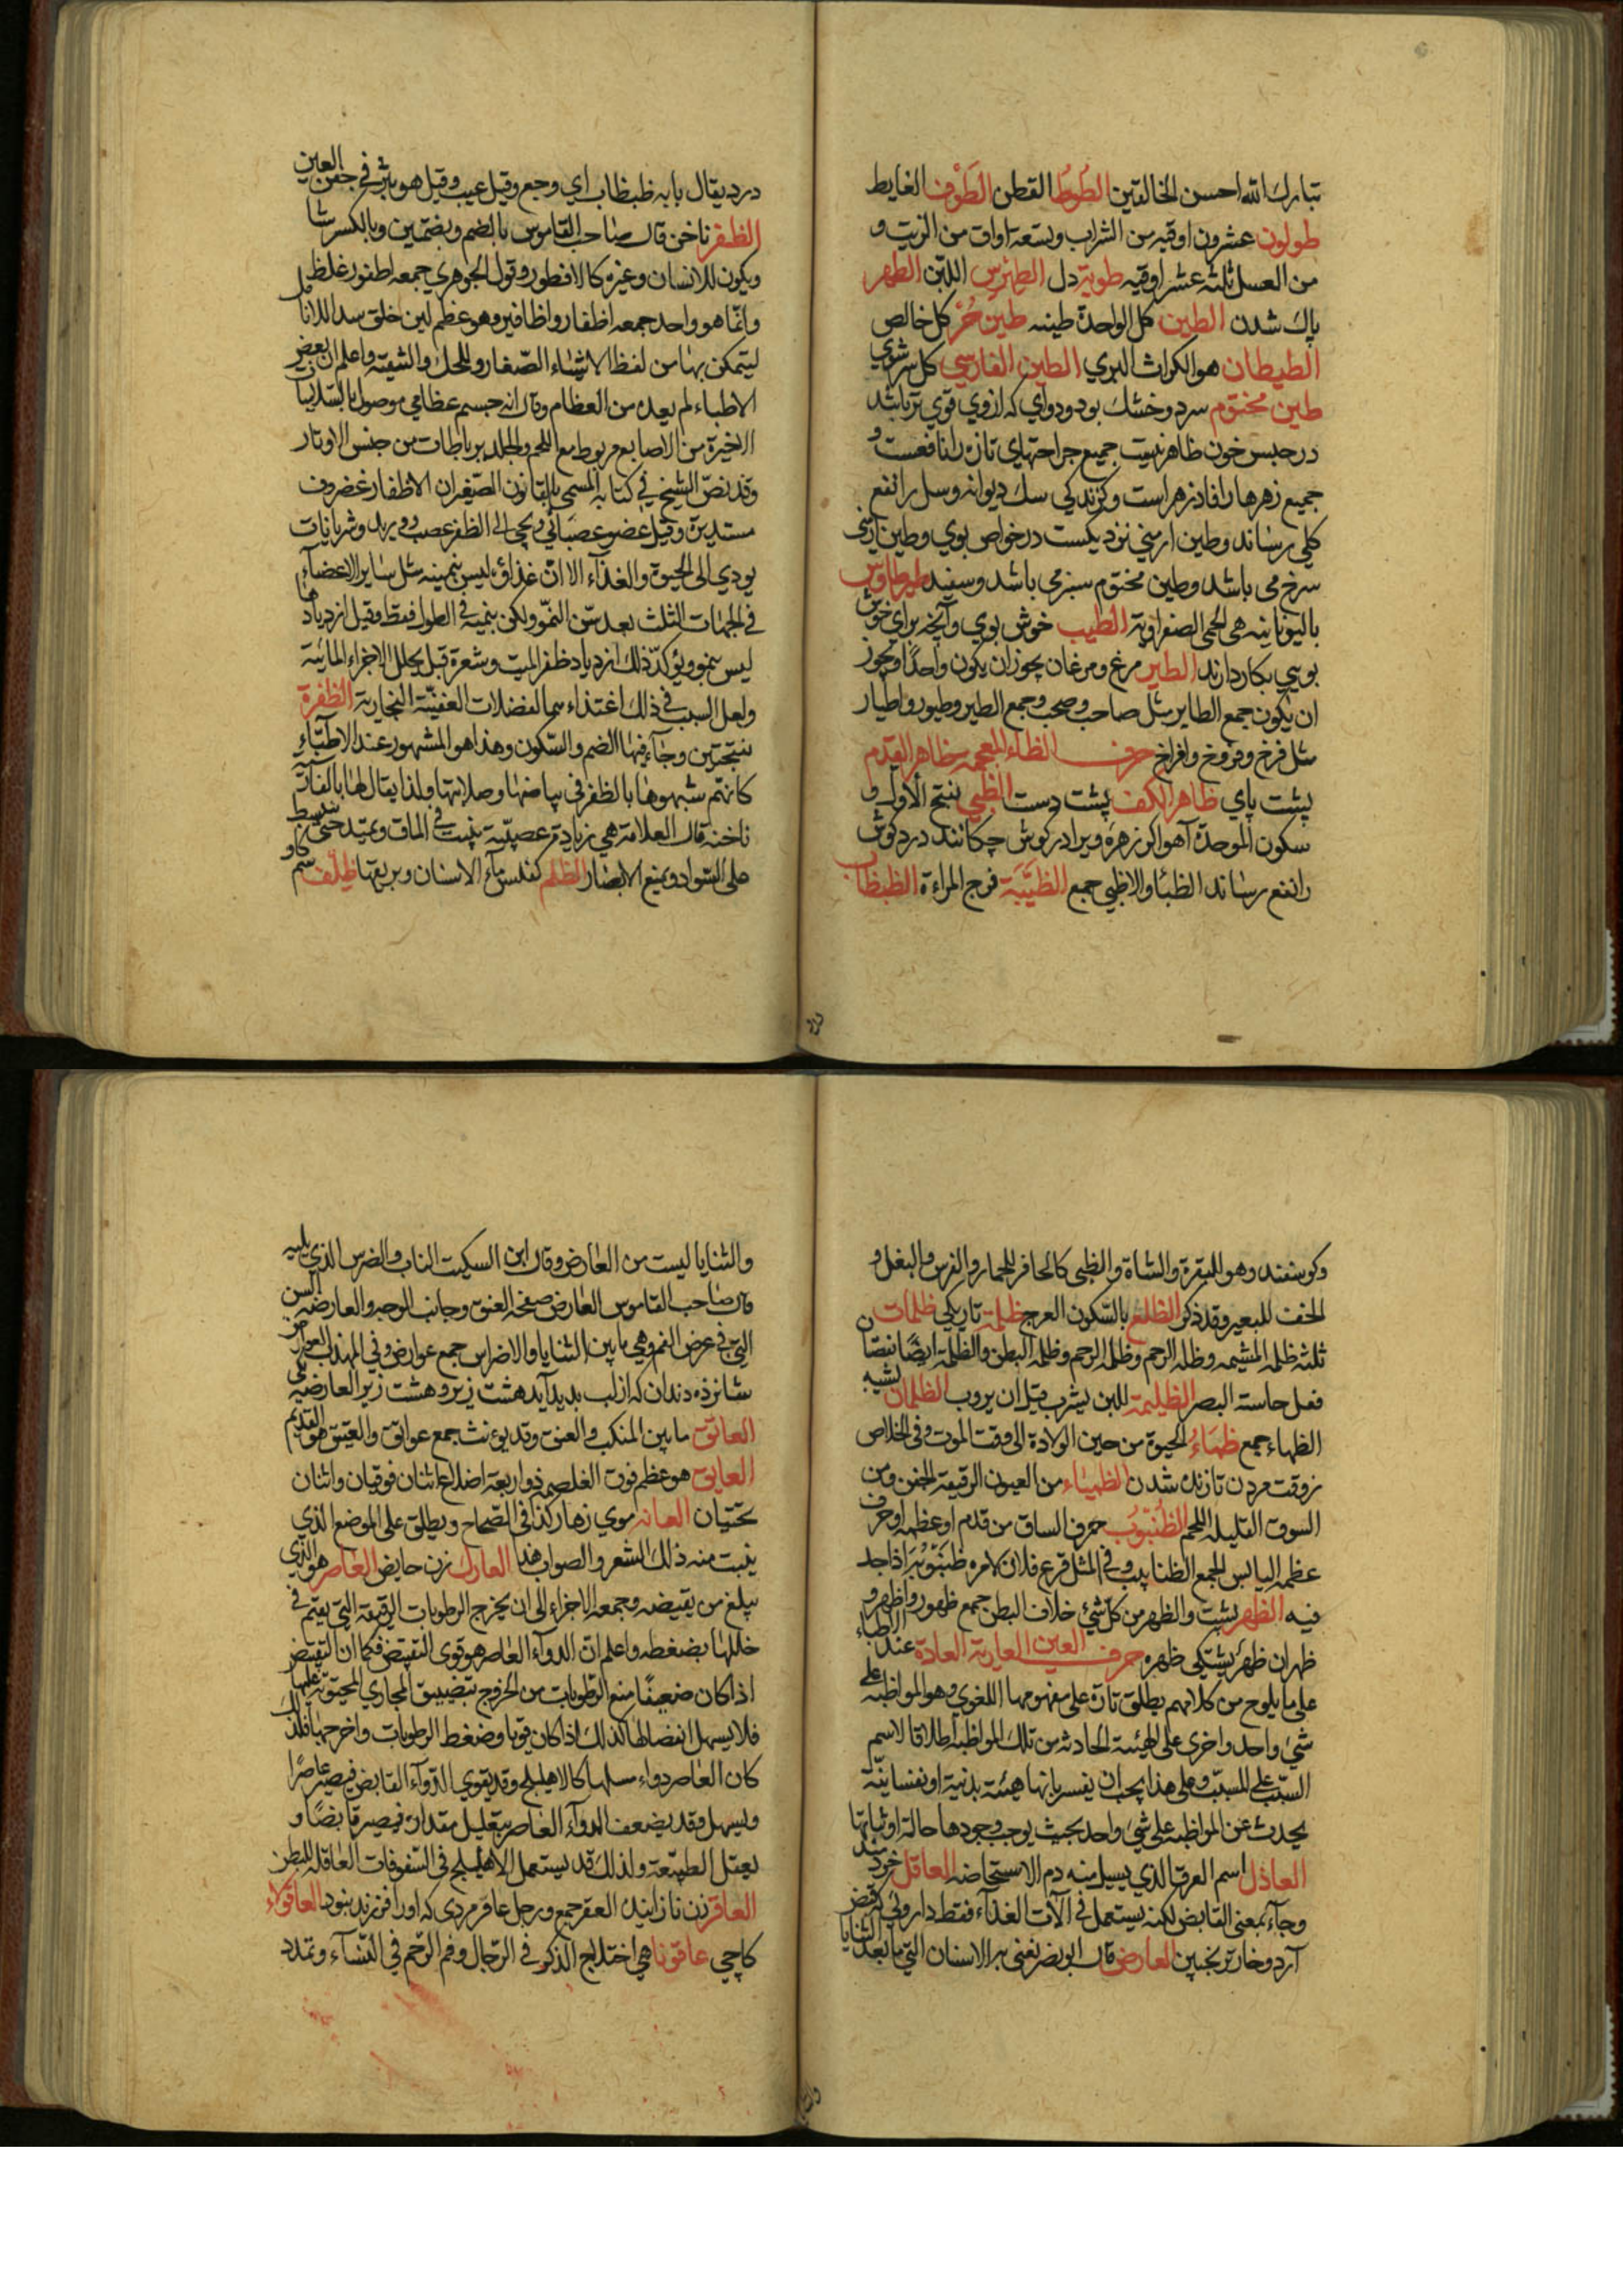 تبارك الله احسن الخالقين الطُوطُ القطن الطَوْف الغايط
طولون عشرون اوقيه من الشراب وتسعة اواق من الزيت و
من العسل ثلثه عشر اوقيه طوية دل اللبن الطهر
پاك شدن الطين كل الواحدة طينه طين حُرّ كل خالص
الطيطان هو الكراث البري الطين الفارسي كل سرشوي
طين مختوم سرد وخشك بود ودواي كه ازوي قوي تر باشد
در حبس خون ظاهر نيست جميع جراحتهاي تازه را نافعست و
جميع زهرها را فادزهر است وكزندكي سك ديوانه وسل را نفع
كلي رساند وطين ارمني نزديكست در خواص بوي وطين ارمني
سرخ مي باشد وطين مختوم سبز مي باشد وسفيد طيطاوس
باليونانيه هي الحمى الصفراوية الطيب خوش بوي وآنچه براي خوش
بويي بكار دارند الطير مرغ ومرغان يجوز ان يكون واحدًا ويجوز
ان يكون جمع الطاير مثل صاحب وصحب وجمع الطير وطيور واطيار
مثل فرخ وفروخ وافراخ حرف الظاء المعجمه ظاهر القدم
پشت پاي ظاهر الكف پشت دست الظبي بفتح الاول و
سكون الموحدة آهو اكر زهره ويرا در كوش چكانند درد كوش
را نفع رساند الظبا والاظبي جمع الظبْيَة فرج المراءة الظبظاب
درد يقال بابه ظبظاب اي وجع وقيل عيب وقيل هو بثر في جفن العين
الظفر ناخن قال صاحب القاموس بالضم وبضمتين وبالكسر شا
ويكون للانسان وغيره كالاظفور وقول الجوهري جمعه اظفور غلط
وانما هو واحد جمعه اظفار واظافير وهو عظم لين خلق سندا للانامل
ليتمكن بها من لفظ الاشياء الصغار وللحك والتنقية واعلم ان بعض
الاطباء لم يعده من العظام وقال انه جسم عظامي موصول بالسلاميات
الاخيرة من الاصابع مربوط مع اللحم والجلد برباطات من جنس الاوتار
وقد نصّ الشيخ في كتابه المسمى بالقانون الصغير ان الاظفار غضروف
مستديرة وقيل عضو عصباني ويجي الى الظفر عصب ووريد وشريانات
يودي الى الحيوة والغذاء الا انّ غذاؤه ليس ينميه مثل ساير الاعضآء
في الجهات الثلث بعد سن النمو ولكن ينميه في الطول فقط وقيل ازديادها
ليس بنمو ويؤكد ذلك ازدياد ظفر الميت وشعره قبل تحلل الاجزاء المائية
ولعل السبب في ذلك اغتذاءهما الفضلات العفنيّة البخارية الظفرة
بفتحتين وجآء فيها الضم والسكون وهذا هو المشهور عند الاطبّاء
كانهم شبهوها بالظفر في بياضها وصلابتها ولذا يقال لها بالفارسية
ناخنه قال العلامة هي زيادة عصبيّة ينبت في الماق ويمتد حتى ينبسط
على السواد ويمنع الابصار الظلم كفلس ماء الاسنان وبريقها ظِلْف سم كاو
وكوسفند وهو للبقرة والشاة والظبي كالحافر للحمار والفرس والبغل و
الخف للبعير وقد ذكر الظلع بالسكون العرج ظلمة تاريكي ظلمات
ثلثة ظلمة المشيمه وظلمة الرحم وظلمة البطن والظلمة ايضًا نقصان
فعل حاسته البصر الظليمة للبن يشرب قبل ان يروب الظمان تشبه
الظماء جمع ظِمَاءُ الحيوة من حين الولادة الى وقت الموت وفي الخلاص
ز وقت مردن تا زنده شدن الظمياء من العيون الرقيقة الجفن ومن
السوق القليله اللحم الظُنْبُوبُ حرف الساق من قدم او عظمه او حرف
عظمه اليابس الجمع الظنابيب وفي المثل قرع فلان لامره ظنبوبه اذا جد
فيه الظهر پشت والظهر من كل شيء خلاف البطن جمع ظهور واظهر و
ظهران ظهر پشتكي ظهره حرف العين العارية العادة عند الاطباء
على ما يلوح من كلامهم يطلق تارة على مفهومها اللغوي وهو المواظبة على
شيء واحد واخرى على الهيئة الحادثه من تلك المواظبة اطلاقا لاسم
السبب على المسبب وعلى هذا يجب ان يفسر بانها هيئة بدنية او نفسانيّة
يحدث عن المواظبة على شيء واحد بحيث يوجب وجودها حالة او ثباتها
العاذل اسم العرق الذي يسيل منه دم الاستحاضه العاقل خردمند
وجآء بمعنى القابض لكنه يستعمل في الآت الغذاء فقط داروئي كه قبض
آرد وخار ترنجبين العارض قال ابو نصر يعنى به الاسنان التي ما بعد الثنايا
والثنايا ليست من العارض وقال ابن السكيت الناب والضرس الذي يليه
قال صاحب القاموس العارض صفحة العنق وجانب الوجه والعارضه السن
التي في عرض الفم وهي ما بين الثنايا والاضراس جمع عوارض وفي المهذب العوارض
شانزده دندان كه از لب بديد آيد هشت زبر وهشت زير العارضه يكي
العاتق ما بين المنكب والعنق وقد يؤنث جمع عواتق والعتيق هو القديم
العايق هو عظم فوق الغلصمه ذو اربعة اضلاع اثنان فوقيان واثنان
تحتيان العانه موي زهار كذا في الصّحاح ويطلق على الموضع الذي
ينبت منه ذلك الشعر والصواب هذا العارك زن حايض العاصر هو الذي
يبلغ من يقبضه وجمعه الاجزاء الى ان يخرج الرطوبات الرقيقة التي يقيم في
خللها بضغطه واعلم انّ الدوآء العاصر هو قوى التقبض فكما ان التقبض
اذا كان ضعيفًا منع الرطوبات من الخروج بتضييق المجاري المحتوية عليها
فلا يسهل انفصالها كذلك اذا كان قويا وضغط الرطوبات واخرجها فلذلك
كان العاصر دواء مسهلا كالاهليلج وقد يقوي الدوآء القابض فيصير عاصرًا
ويسهل وقد يضعف الدوآء العاصر بتقليل مقداره فيصير قابضًا و
يعقل الطبيعة ولذلك قد يستعمل الاهليلج في السفوفات العاقله للبطن
العاقر زن نازاينده العقر جمع ورجل عاقر مردي كه اورا فرزند نبود العاقولاء
كاچي عاقونا هي اختلاج الذكر في الرّجال وفم الرّحم في النّساء وتمدد